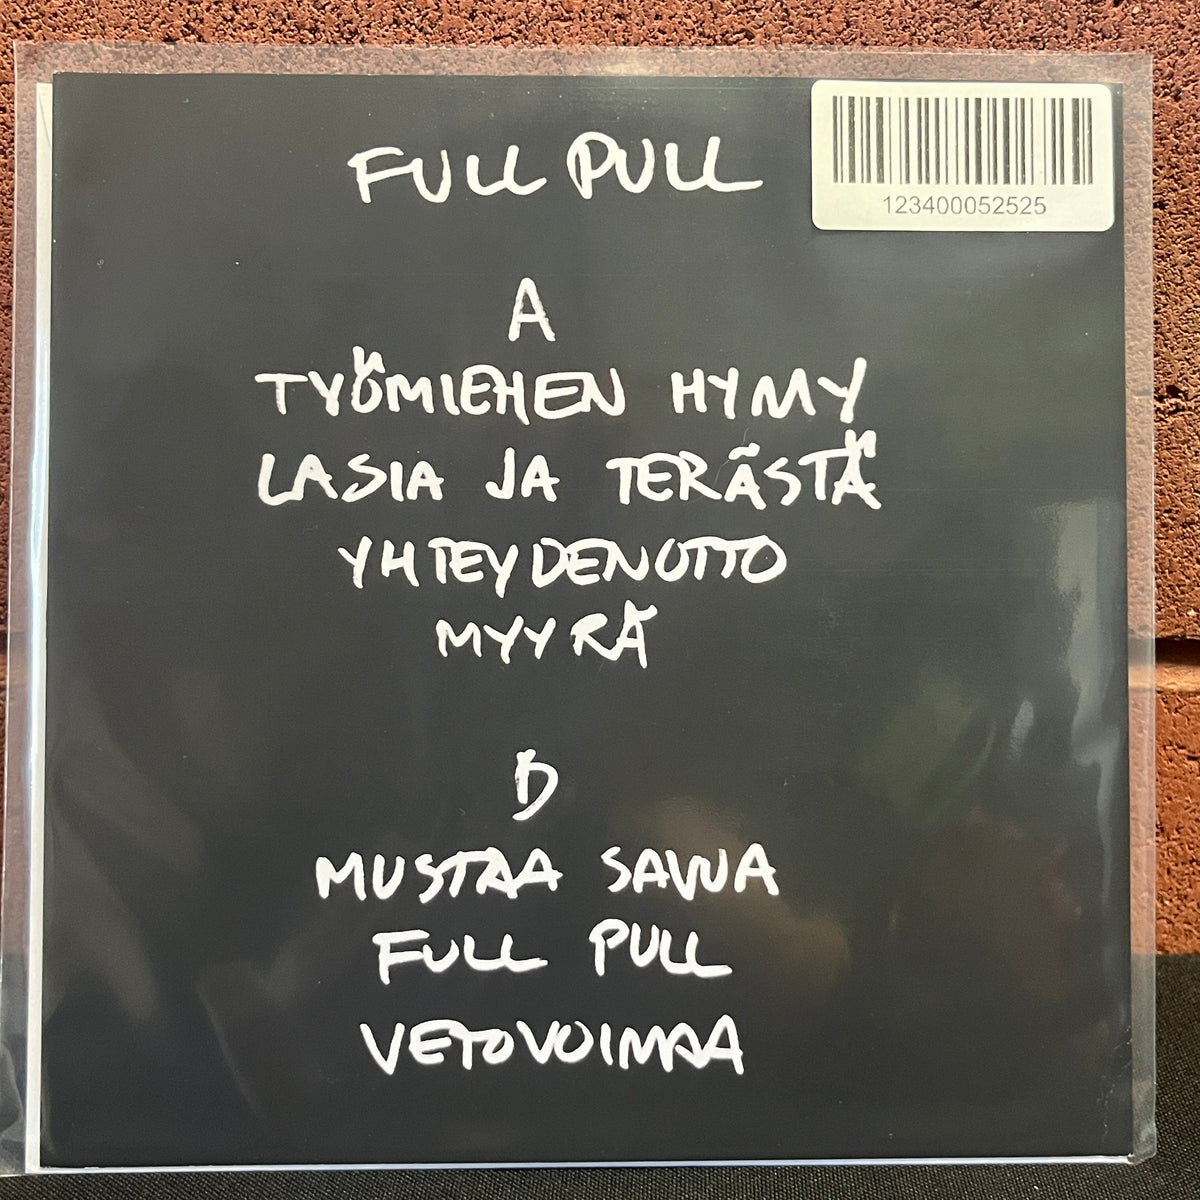 FULL PULL
123400052525
A
TYÖMIEHEN HYMY
LASIA JA TERÄSTÄ
YHTEYDENOTTO
MYYRÄ
B
MUSTAA SAVUA
FULL PULL
VETOVOIMAA